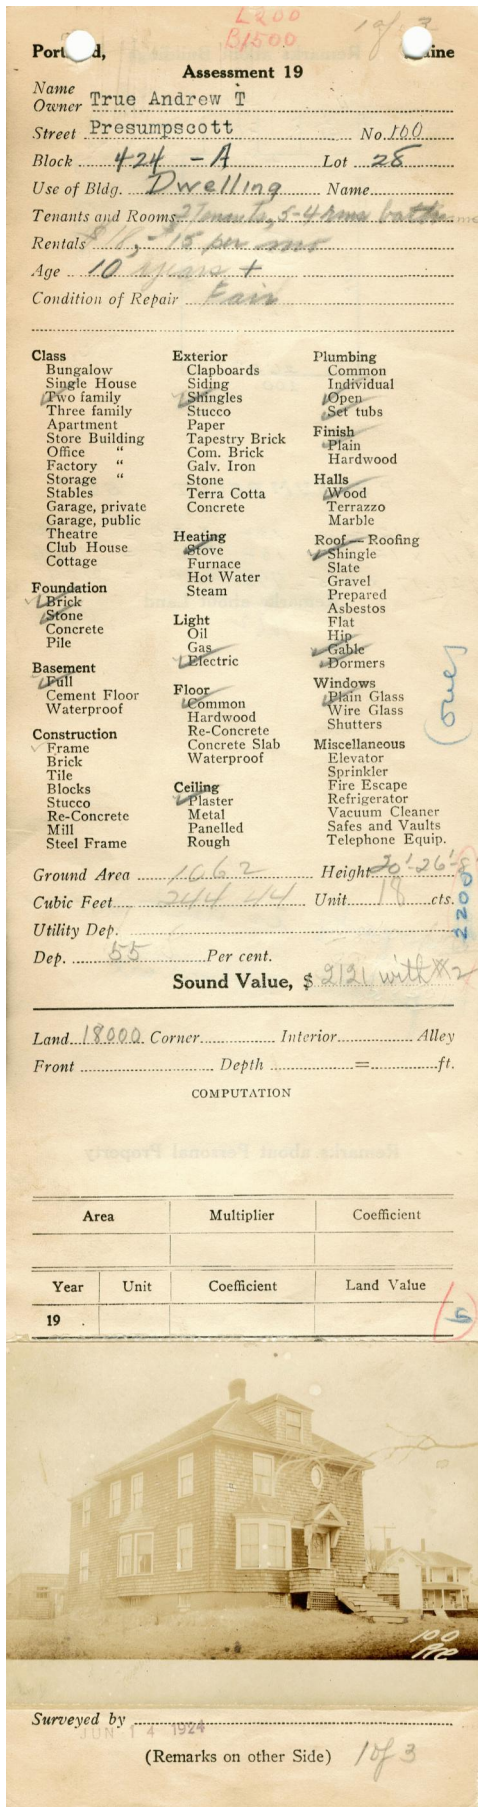 L200
B1500
1 of 3
Portland, Maine
Assessment 19
Name
Owner True Andrew T
Street Presumpscott No. 160
Block 424 - A Lot 28
Use of Bldg. Dwelling Name
Tenants and Rooms 2 Tenants, 5-4 rms bath
Rentals $18, - 15 per mo
Age 10 years +
Condition of Repair Fair
Class
Bungalow
Single House
Two family
Three family
Apartment
Store Building
Office "
Factory "
Storage "
Stables
Garage, private
Garage, public
Theatre
Club House
Cottage
Foundation
Brick
Stone
Concrete
Pile
Basement
Full
Cement Floor
Waterproof
Construction
Frame
Brick
Tile
Blocks
Stucco
Re-Concrete
Mill
Steel Frame
Exterior
Clapboards
Siding
Shingles
Stucco
Paper
Tapestry Brick
Com. Brick
Galv. Iron
Stone
Terra Cotta
Concrete
Heating
Stove
Furnace
Hot Water
Steam
Light
Oil
Gas
Electric
Floor
Common
Hardwood
Re-Concrete
Concrete Slab
Waterproof
Ceiling
Plaster
Metal
Panelled
Rough
Plumbing
Common
Individual
Open
Set tubs
Finish
Plain
Hardwood
Halls
Wood
Terrazzo
Marble
Roof — Roofing
Shingle
Slate
Gravel
Prepared
Asbestos
Flat
Hip
Gable
Dormers
Windows
Plain Glass
Wire Glass
Shutters
Miscellaneous
Elevator
Sprinkler
Fire Escape
Refrigerator
Vacuum Cleaner
Safes and Vaults
Telephone Equip.
(over)
Ground Area 1062 Height 20'-26'-8
Cubic Feet 24444 Unit 18 cts.
2200
Utility Dep.
Dep. 55 Per cent.
Sound Value, $ 2121 with #2
Land 18000 Corner Interior Alley
Front Depth = ft.
COMPUTATION
Remarks about Personal Property
Area Multiplier Coefficient
Year Unit Coefficient Land Value
19 .
100
Pre
Surveyed by
JUN 14 1924
(Remarks on other Side) 1 of 3